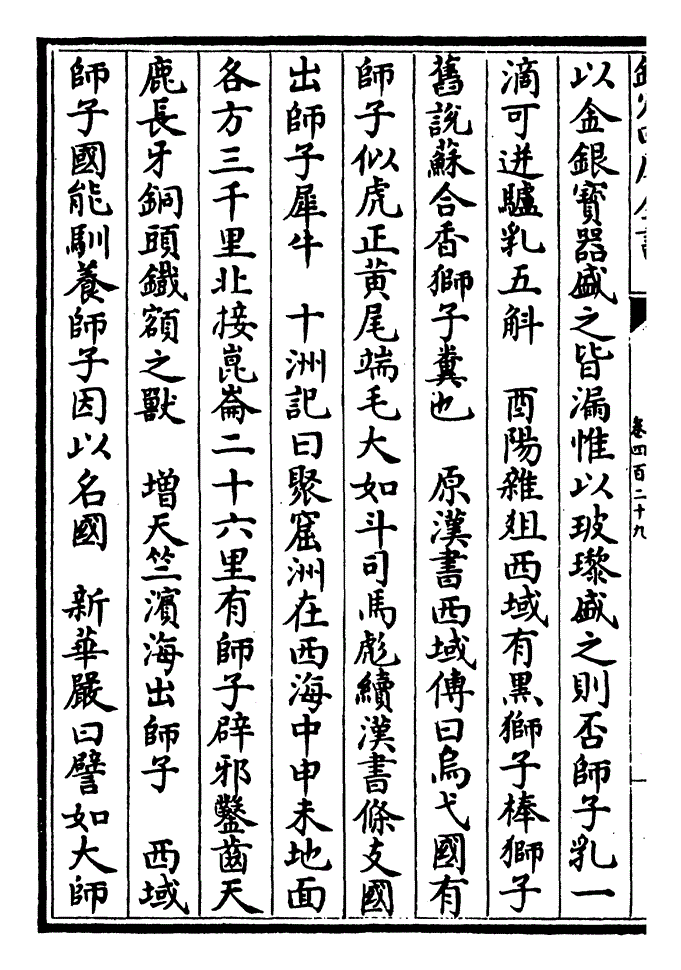 卷四百二十九
以金銀寳器盛之皆漏惟以玻瓈盛之則否師子乳一
滴可迸驢乳五斛　酉陽雜俎西域有黒獅子棒獅子
舊説蘇合香獅子糞也　原漢書西域傳曰烏弋國有
師子似虎正黄尾端毛大如斗司馬彪續漢書條支國
出師子犀牛　十洲記曰聚窟洲在西海中申未地面
各方三千里北接崑崙二十六里有師子辟邪鑿齒天
鹿長牙銅頭鐵額之獸　增天竺濵海出師子　西域
師子國能馴養師子因以名國　新華嚴曰譬如大師